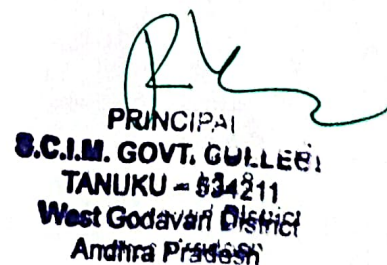 PRINCIPAL
S.C.I.M. GOVT. COLLEGE
TANUKU - 534211
West Godavari District
Andhra Pradesh